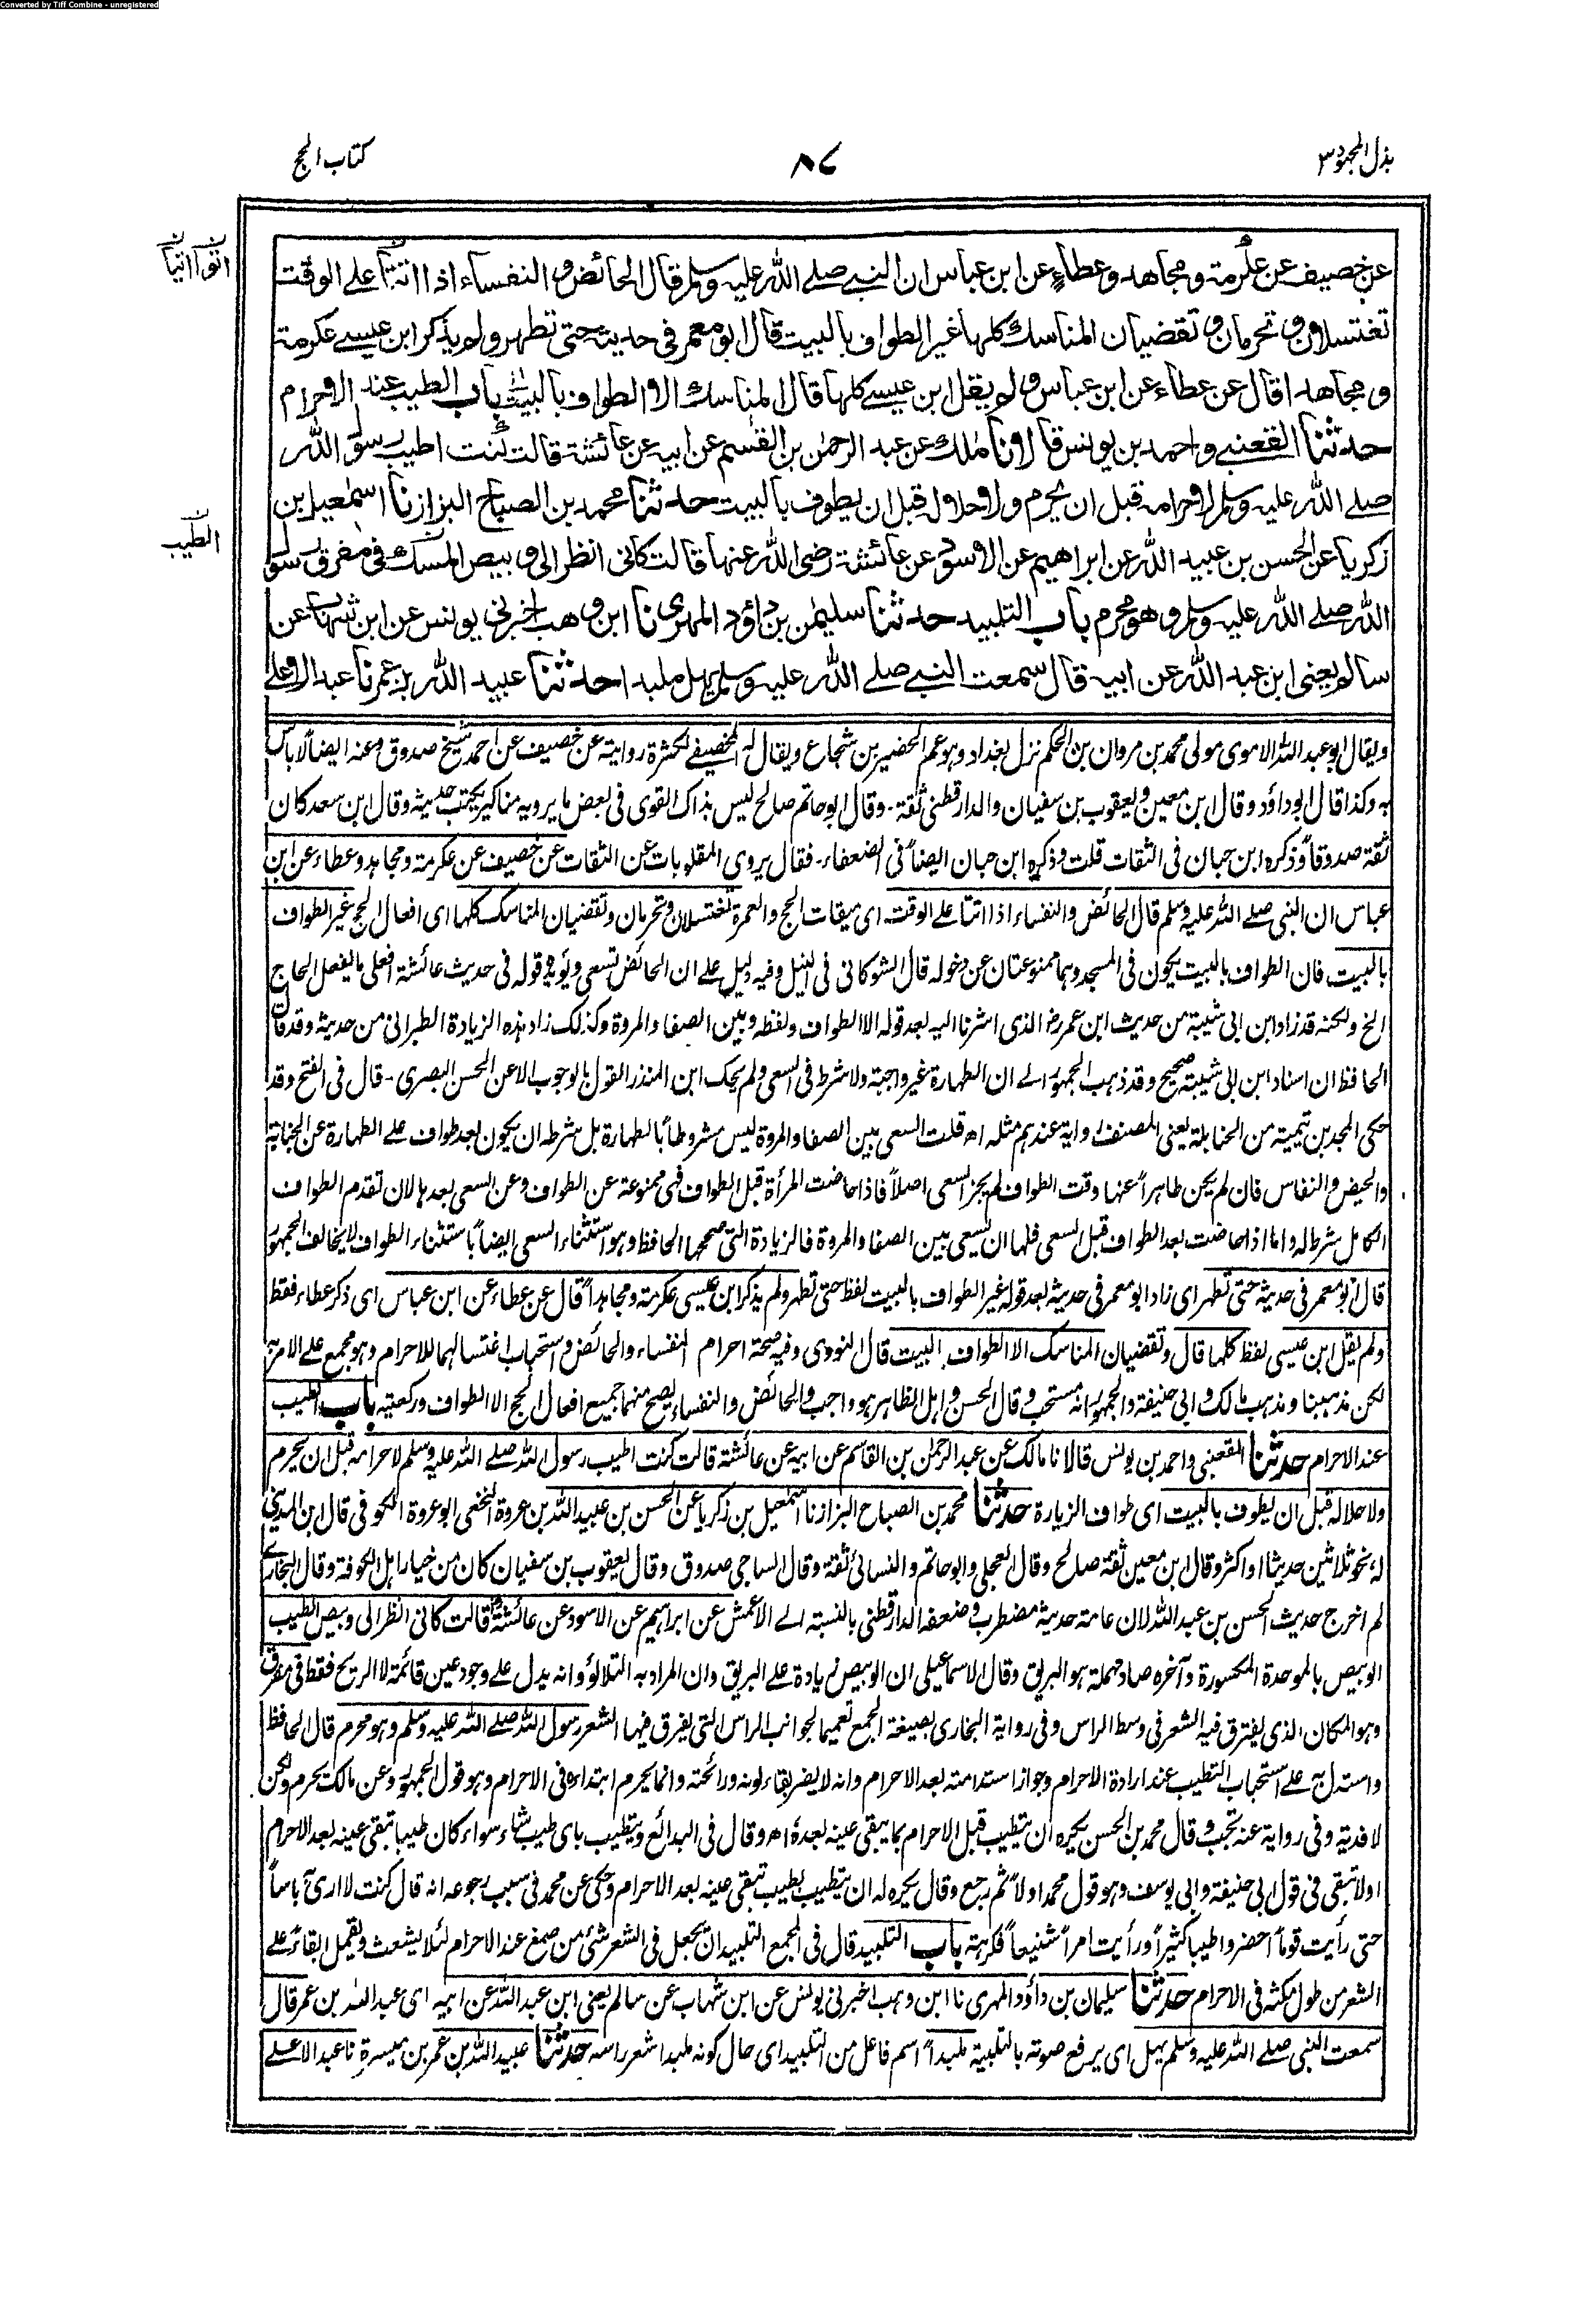 Converted by Tiff Combine - unregistered
بذل المجهود ٣
٨٧
كتاب الحج
عن خصيف عن عكرمة ومجاهد وعطاء عن ابن عباس ان النبي صلے الله عليه وسلم قال الحائض والنفساء اذا اتتا علے الوقت
تغتسلان وتحرمان وتقضيان المناسك كلها غير الطواف بالبيت قال ابو معمر في حديثه حتى تطهر ولم يذكر ابن عيسے عكرمة
ومجاهدا قال عن عطاء عن ابن عباس ولم يقل ابن عيسے كلها قال المناسك الا الطواف بالبيت باب الطيب عند الاحرام
حدثنا القعنبے واحمد بن يونس قالا نا ملك عن عبد الرحمن بن القسم عن ابيه عن عائشة قالت كنت اطيب رسول الله
صلے الله عليه وسلم لاحرامه قبل ان يحرم ولاحلاله قبل ان يطوف بالبيت حدثنا محمد بن الصباح البزاز نا اسمعيل بن
زكريا عن الحسن بن عبيد الله عن ابراهيم عن الاسود عن عائشة رضى الله عنها قالت كانى انظر الى وبيص المسك فى مفرق رسول
الله صلے الله عليه وسلم وهو محرم باب التلبيد حدثنا سليمن بن داؤد المهرى نا ابن وهب اخبرنى يونس عن ابن شهاب عن
سالم يعنى ابن عبد الله عن ابيه قال سمعت النبے صلے الله عليه وسلم يهل ملبدا حدثنا عبيد الله بن عمر نا عبد الاعلے
الطيب
ويقال ابو عبد الله الاموى مولى محمد بن مروان بن الحكم نزل بغداد وهو عم الخضير بن شجاع ويقال له الخصيفے لكثرة روايته عن خصيف عن احمد شيخ صدوق وعنه ايضاً لاباس
به وكذا قال ابوداؤد وقال ابن معين ويعقوب بن سفيان والدارقطنى ثقة - وقال ابو حاتم صالح ليس بذاك القوى فى بعض ما يرويه مناكير يكتب حديثه وقال ابن سعد كان
ثقة صدوقاً وذكره ابن حبان فى الثقات قلت وذكره ابن حبان ايضاً فى الضعفاء - فقال يروى المقلوبات عن الثقات عن خصيف عن عكرمة ومجاهد وعطاء عن ابن
عباس ان النبى صلے الله عليه وسلم قال الحائض والنفساء اذا اتتا علے الوقت اى ميقات الحج والعمرة تغتسلان وتحرمان وتقضيان المناسك كلها اى افعال الحج غير الطواف
بالبيت فان الطواف بالبيت يكون فى المسجد وهما ممنوعتان عن دخوله قال الشوكانى فى النيل وفيه دليل علے ان الحائض تسعى ويؤيده قوله فى حديث عائشة افعلى ما يفعل الحاج
الخ ولكنه قد زاد ابن ابى شيبة من حديث ابن عمر رض الذى اشرنا اليه بعد قوله الا الطواف ولفظه وبين الصفا والمروة وكذلك زاد هذه الزيادة الطبرانى من حديثه وقد قال
الحافظ ان اسناد ابن ابى شيبة صحيح وقد ذهب الجمهور الے ان الطهارة غير واجبة ولا شرط فى السعى ولم يحك ابن المنذر القول بالوجوب الا عن الحسن البصرى - قال فى الفتح وقد
حكى المجد بن تيمية من الحنابلة يعنى المصنف رواية عندهم مثله اھ قلت السعى بين الصفا والمروة ليس مشروطاً بالطهارة بل شرطه ان يكون بعد طواف علے الطهارة عن الجنابة
والحيض والنفاس فان لم يكن طاهراً عنها وقت الطواف لم يجز السعى اصلاً فاذا حاضت المرأة قبل الطواف فهى ممنوعة عن الطواف وعن السعى بعدها لان تقدم الطواف
الكامل شرط له واما اذا حاضت بعد الطواف قبل السعى فلها ان تسعى بين الصفا والمروة فالزيادة التى صححها الحافظ وهو استثناء السعى ايضاً باستثناء الطواف لا يخالف الجمهور
قال ابو معمر فى حديثه حتى تطهر اى زاد ابو معمر فى حديثه بعد قوله غير الطواف بالبيت لفظ حتى تطهر ولم يذكر ابن عيسى عكرمة ومجاهداً قال عن عطاء عن ابن عباس اى ذكر عطاء فقط
ولم يقل ابن عيسى لفظ كلها قال وتقضيان المناسك الا الطواف بالبيت قال النووى وفيه صحة احرام النفساء والحائض واستحباب اغتسالهما للاحرام وهو مجمع علے الامر به
لكن مذهبنا ومذهب مالك وابى حنيفة والجمهور انه مستحب وقال الحسن واهل الظاهر هو واجب والحائض والنفساء يصح منهما جميع افعال الحج الا الطواف وركعتيه باب الطيب
عند الاحرام حدثنا القعنبى واحمد بن يونس قالا نا مالك عن عبد الرحمن بن القاسم عن ابيه عن عائشة قالت كنت اطيب رسول الله صلے الله عليه وسلم لاحرامه قبل ان يحرم
ولاحلاله قبل ان يطوف بالبيت اى طواف الزيارة حدثنا محمد بن الصباح البزاز نا اسمعيل بن زكريا عن الحسن بن عبيد الله بن عروة النخعى ابو عروة الكوفى قال ابن المدينى
له نحو ثلاثين حديثا او اكثر وقال ابن معين ثقة صالح وقال العجلى وابو حاتم والنسائى ثقة وقال الساجى صدوق وقال يعقوب بن سفيان كان من خيار اهل الكوفة وقال البخارى
لم اخرج حديث الحسن بن عبد الله لان عامة حديثه مضطرب وضعفه الدارقطنى بالنسبة الے الاعمش عن ابراهيم عن الاسود عن عائشة قالت كانى انظر الى وبيص الطيب
الوبيص بالموحدة المكسورة وآخره صاد مهملة هو البريق وقال الاسماعيلى ان الوبيص زيادة علے البريق وان المراد به التلالؤ وانه يدل علے وجود عين قائمة لا الريح فقط فى مفرق
وهو المكان الذى يفترق فيه الشعر فى وسط الراس وفى رواية البخارى بصيغة الجمع تعميما لجوانب الراس التى يفرق فيها الشعر رسول الله صلے الله عليه وسلم وهو محرم قال الحافظ
واستدل به علے استحباب التطيب عند ارادة الاحرام وجواز استدامته بعد الاحرام وانه لا يضر بقاء لونه ورائحته وانما يحرم ابتداءه فى الاحرام وهو قول الجمهور وعن مالك يحرم ولكن
لا فدية وفى رواية عنه تجب وقال محمد بن الحسن يكره ان يتطيب قبل الاحرام بما يبقى عينه بعده اھ وقال فى البدائع ويتطيب باى طيب شاء سواء كان طيبا تبقى عينه بعد الاحرام
اولا تبقى فى قول ابى حنيفة وابى يوسف وهو قول محمد اولاً ثم رجع وقال يكره له ان يتطيب بطيب تبقى عينه بعد الاحرام وحكى عن محمد فى سبب رجوعه انه قال كنت لا ارى به باساً
حتى رأيت قوماً احضروا طيبا كثيراً ورأيت امراً شنيعاً فكرهته باب التلبيد قال فى المجمع التلبيد ان يجعل فى الشعر شئ من صمغ عند الاحرام لئلا يشعث ويقمل ابقاءً علے
الشعر من طول مكثه فى الاحرام حدثنا سليمان بن داؤد المهرى نا ابن وهب اخبرنى يونس عن ابن شهاب عن سالم يعنى ابن عبد الله عن ابيه اى عبد الله بن عمر قال
سمعت النبى صلے الله عليه وسلم يهل اى يرفع صوته بالتلبية ملبداً اسم فاعل من التلبيد اى حال كونه ملبدا شعر راسه حدثنا عبيد الله بن عمر بن ميسرة نا عبد الاعلے